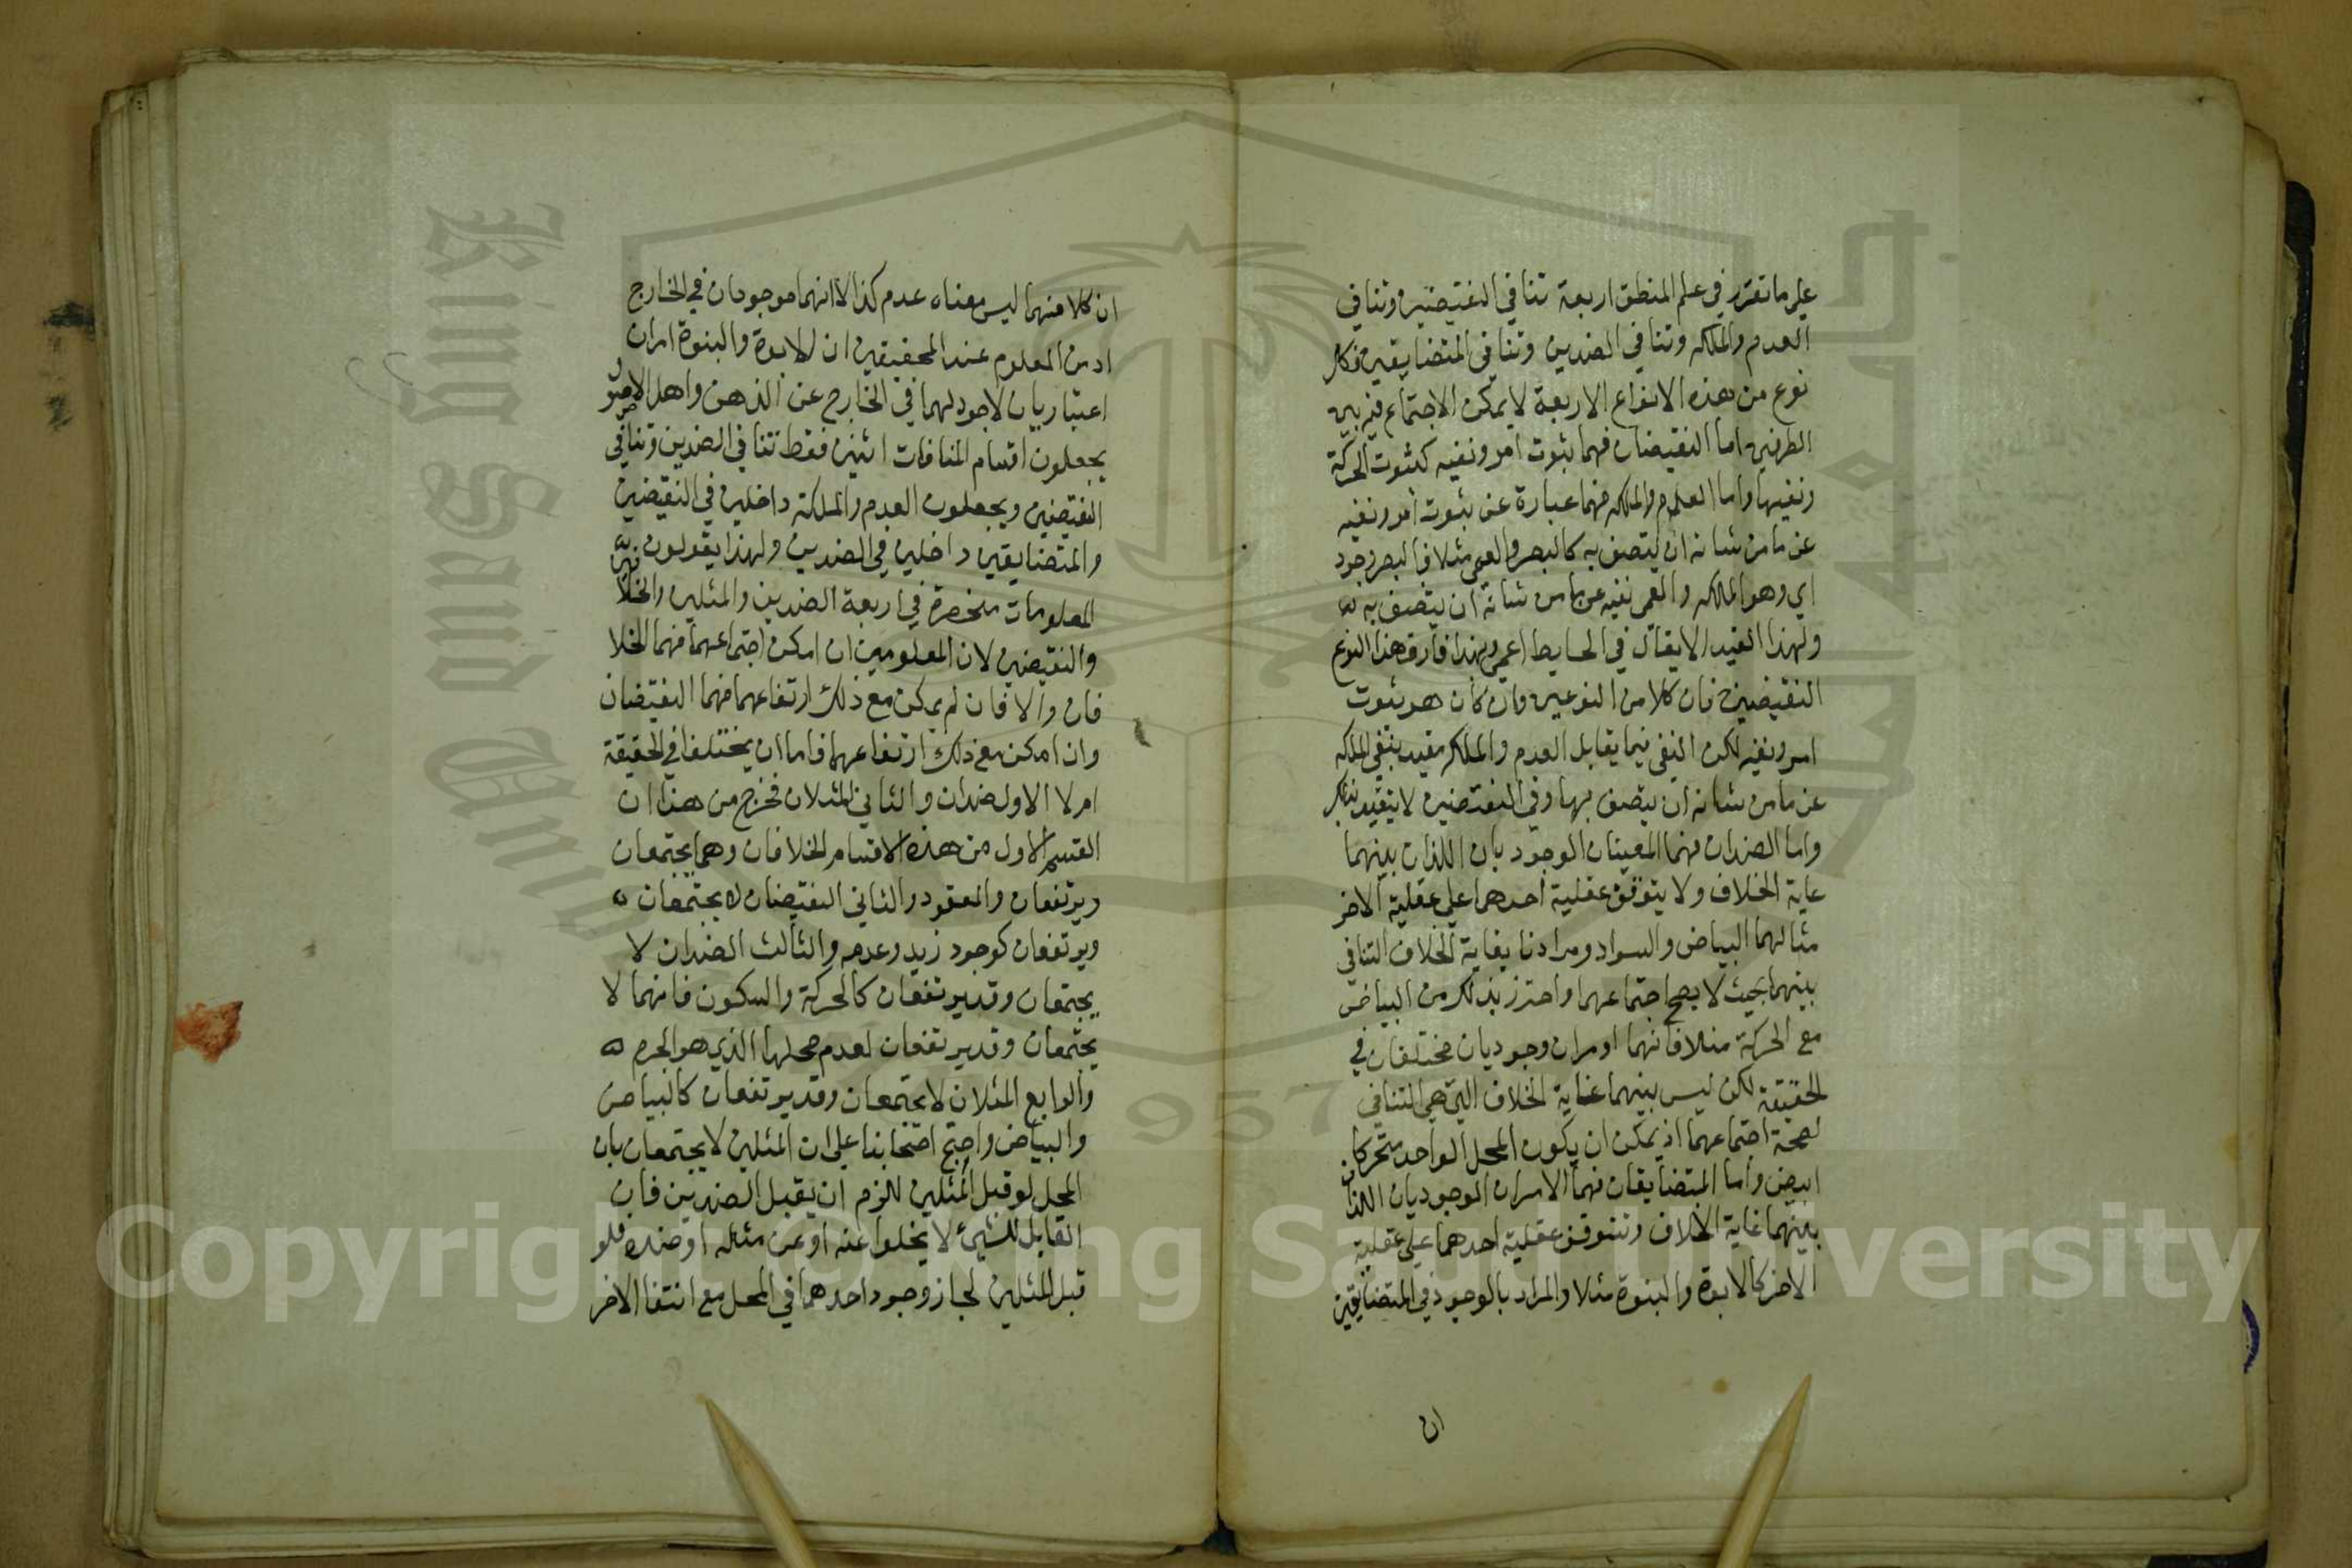 علي ما تقرر في علم المنطق اربعة تنافي النقيضين وتنافي
العدم والملكه وتنافي الضدين وتنافي المتضايقين فكل
نوع من هذه الانواع الاربعة لا يمكن الاجتماع فيه بين
الطرفين اما النقيضان فهما ثبوت امر ونفيه كثبوت الحركة
ونفيها واما العدم والملكه فهما عبارة عن ثبوت امر ونفيه
عن ما من شانه ان يتصف به كالبصر والعمي مثلا فالبصر وجود
اي وهو الملكه والعمي نفيه عن ما من شانه ان يتصف به
ولهذا القيد لا يقال في الحايط اعمي وبهذا فارق هذا النوع
النقيضين فان كلا من النوعين وان كان هو ثبوت
امر ونفيه لكن النفي فيما يقابل العدم والملكه مقيد بنفي الملكه
عن ما من شانه ان يتصف بها وفي النقيضين لا يتقيد بذلك
واما الضدان فهما المعينان الوجود بان اللذان بينهما
غاية الخلاف ولا يتوقف عقلية احدهما علي عقلية الاخر
مثالهما البياض والسواد ومرادنا بغاية الخلاف التنافي
بينهما بحيث لا يصح اجتماعهما واحترز بذلك من البياض
مع الحركة مثلا فانهما امران وجوديان مختلفان في
الحقيقة لكن ليس بينهما غاية الخلاف التي هي التنافي
لصحة اجتماعهما اذ يمكن ان يكون المحل الواحد متحركا
ابيض واما المتضايقان فهما الامران الوجوديان اللذان
بينهما غاية الخلاف وتتوقف عقلية احدهما علي عقلية
الاخر كالابوة والبنوة مثلا والمراد بالوجود في المتضايقين
ان
ان كلا منهما ليس معناه عدم كذا لا انهما موجودان في الخارج
اذ من المعلوم عند المحققين ان الابوة والبنوة امران
اعتباريان لا وجود لهما في الخارج عن الذهن واهل الاصول
يجعلون اقسام المنافات اثنين فقط تنافي الضدين وتنافي
النقيضين ويجعلون العدم والملكة داخلين في النقيضين
والمتضايقين داخلين في الضدين ولهذا يقولون
المعلومات منحصرة في اربعة الضدين والمثلين والخلافين
والنقيضين لان المعلومين ان امكن اجتماعهما فهما الخلا
فان والا فان لم يمكن مع ذلك ارتفاعهما فهما النقيضان
وان امكن مع ذلك ارتفاعهما فاما ان يختلفا في الحقيقة
ام لا الاول ضدان والثاني المثلان فخرج من هذا ان
القسم الاول من هذه الاقسام الخلافان وهما يجتمعان
ويرتفعان والمعقود والثاني النقيضان لا يجتمعان
ويرتفعان كوجود زيد وعدمه والثالث الضدان لا
يجتمعان وقد يرتفعان كالحركة والسكون فانهما لا
يجتمعان وقد يرتفعان لعدم محلهما الذي هو الجرم
والرابع المثلان لا يجتمعان وقد يرتفعان كالبياض
والبياض واحتج اصحابنا علي ان المثلين لا يجتمعان بان
المحل لو قبل المثلين للزم ان يقبل الضدين فان
القابل للشيئ لا يخلوا عنه او عن مثله او ضده فلو
قبل المثلين لجاز وجود احدهما في المحل مع انتفا الاخر
Copyright © King Saud University
King Saud Univ
957